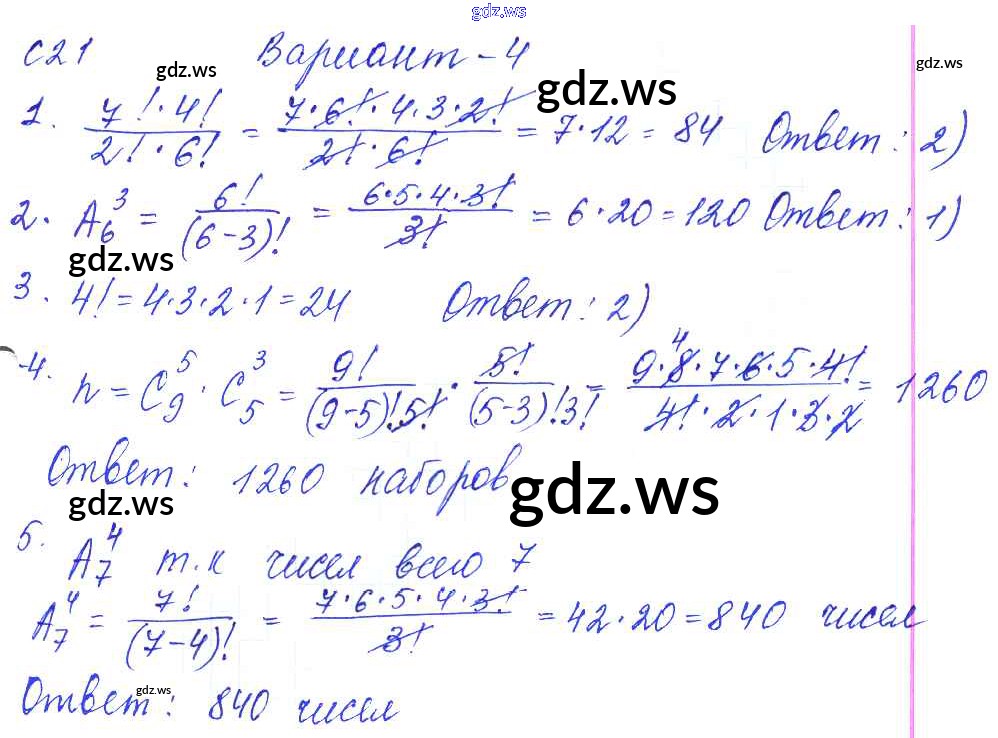 gdz.ws
С21 Вариант-4
gdz.ws gdz.ws gdz.ws
1. 7!·4! / 2!·6! = 7·6!·4·3·2! / 2!·6! = 7·12 = 84 Ответ: 2)
2. A₆³ = 6! / (6-3)! = 6·5·4·3! / 3! = 6·20 = 120 Ответ: 1)
gdz.ws
3. 4! = 4·3·2·1 = 24 Ответ: 2)
4. n = C₉⁵ · C₅³ = 9! / (9-5)!5! · 5! / (5-3)!3! = 9·8⁴·7·6·5·4! / 4!·2·1·3·2 = 1260
Ответ: 1260 наборов
gdz.ws gdz.ws
5. A₇⁴ т.к чисел всего 7
A₇⁴ = 7! / (7-4)! = 7·6·5·4·3! / 3! = 42·20 = 840 чисел
gdz.ws
Ответ: 840 чисел